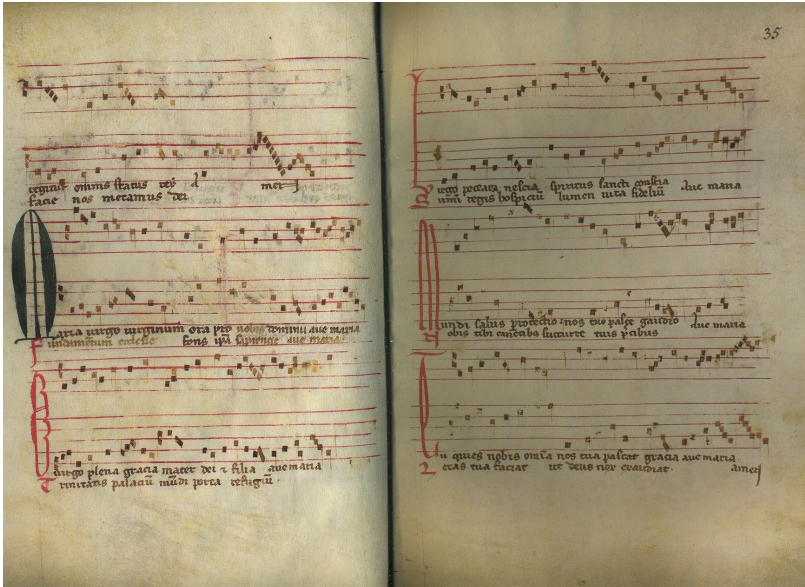 regitur omnis status rey a men
facie nos metamus dei
Maria virgo virginum ora pro nobis dominum ave maria
Fundamentum ecclesie fons ipa sapiencie ave maria
virgo plena gracia mater dei z filia ave maria
Trinitatis palaciu mudi porta refugiu.
35
virgo peccata nescia spiritus sancti conscia Ave maria
regis hospiciu lumen vita fideliu
undi salus protectio nos tuo pasce gaudio Ave maria
obis tibi canetibs succurre tuis pcibus
u quies nobis omia nos tua pascat gracia ave maria
etas tua faciat ut deus nos exaudiat. amen